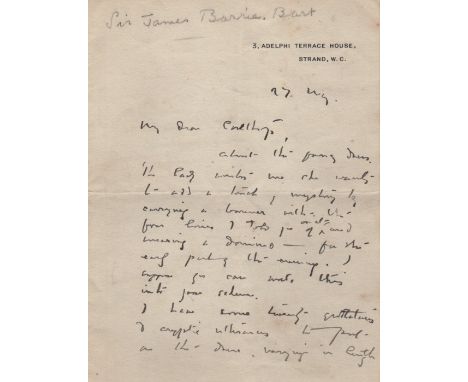 Sir James Barrie. Bart
3, ADELPHI TERRACE HOUSE,
STRAND, W.C.
27.
My dear
about the fancy dress.
The lady writes me she wants
to add a touch of mystery by
carrying a banner with the
four lines I told you of on it and
wearing a domino — for the
early part of the evening. I
suppose you can work this
into your scheme.
I have some twenty
& cryptic utterances to
on the dress, varying in length